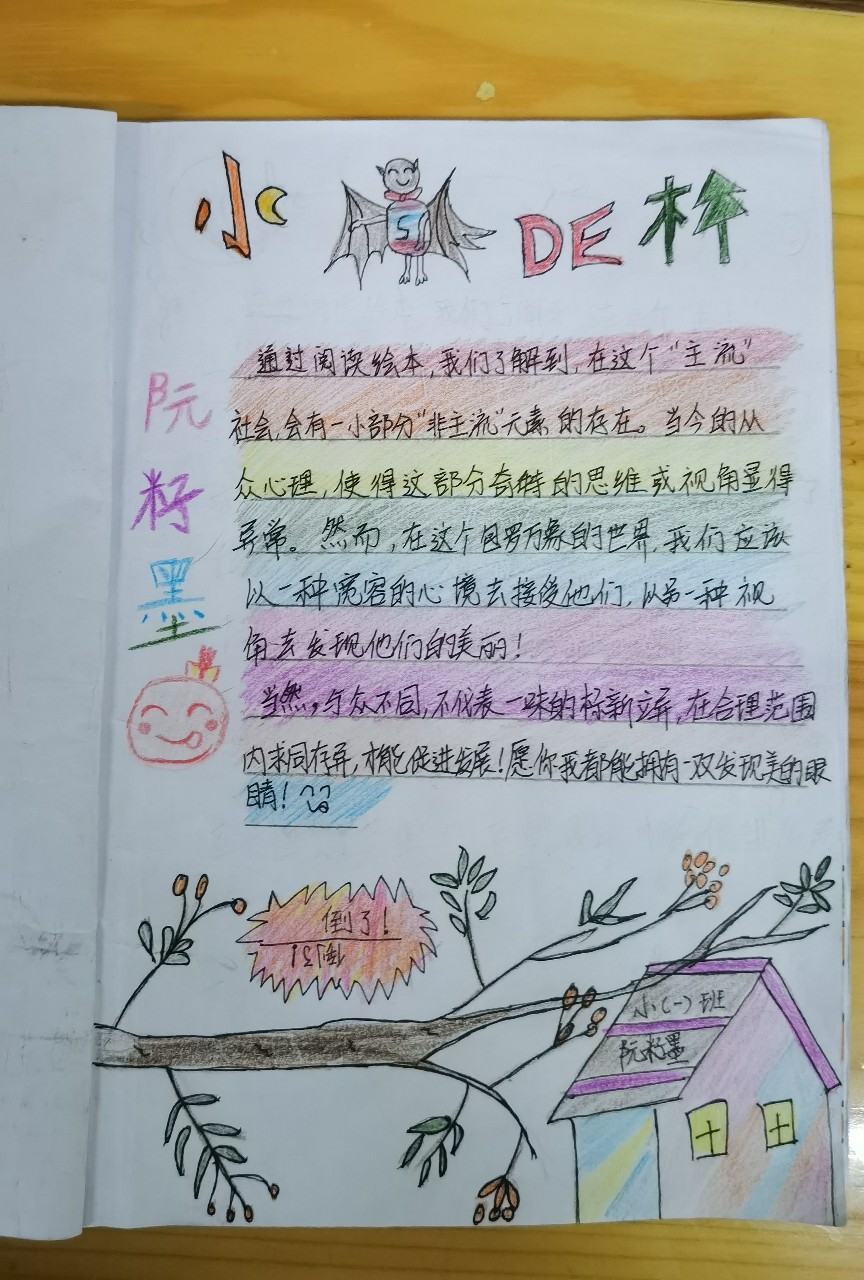 小 DE
阮
籽
墨
通过阅读绘本，我们了解到，在这个“主流”
社会，会有一小部分“非主流”元素的存在。当今的从
众心理，使得这部分奇特的思维或视角显得
异常。然而，在这个包罗万象的世界，我们应该
以一种宽容的心境去接受他们，以另一种视
角去发现他们的美丽！
当然，与众不同，不代表一味的标新立异，在合理范围
内求同存异，才能促进发展！愿你我都能拥有一双发现美的眼
睛！
倒了！
倒了！
小（一）班
阮籽墨